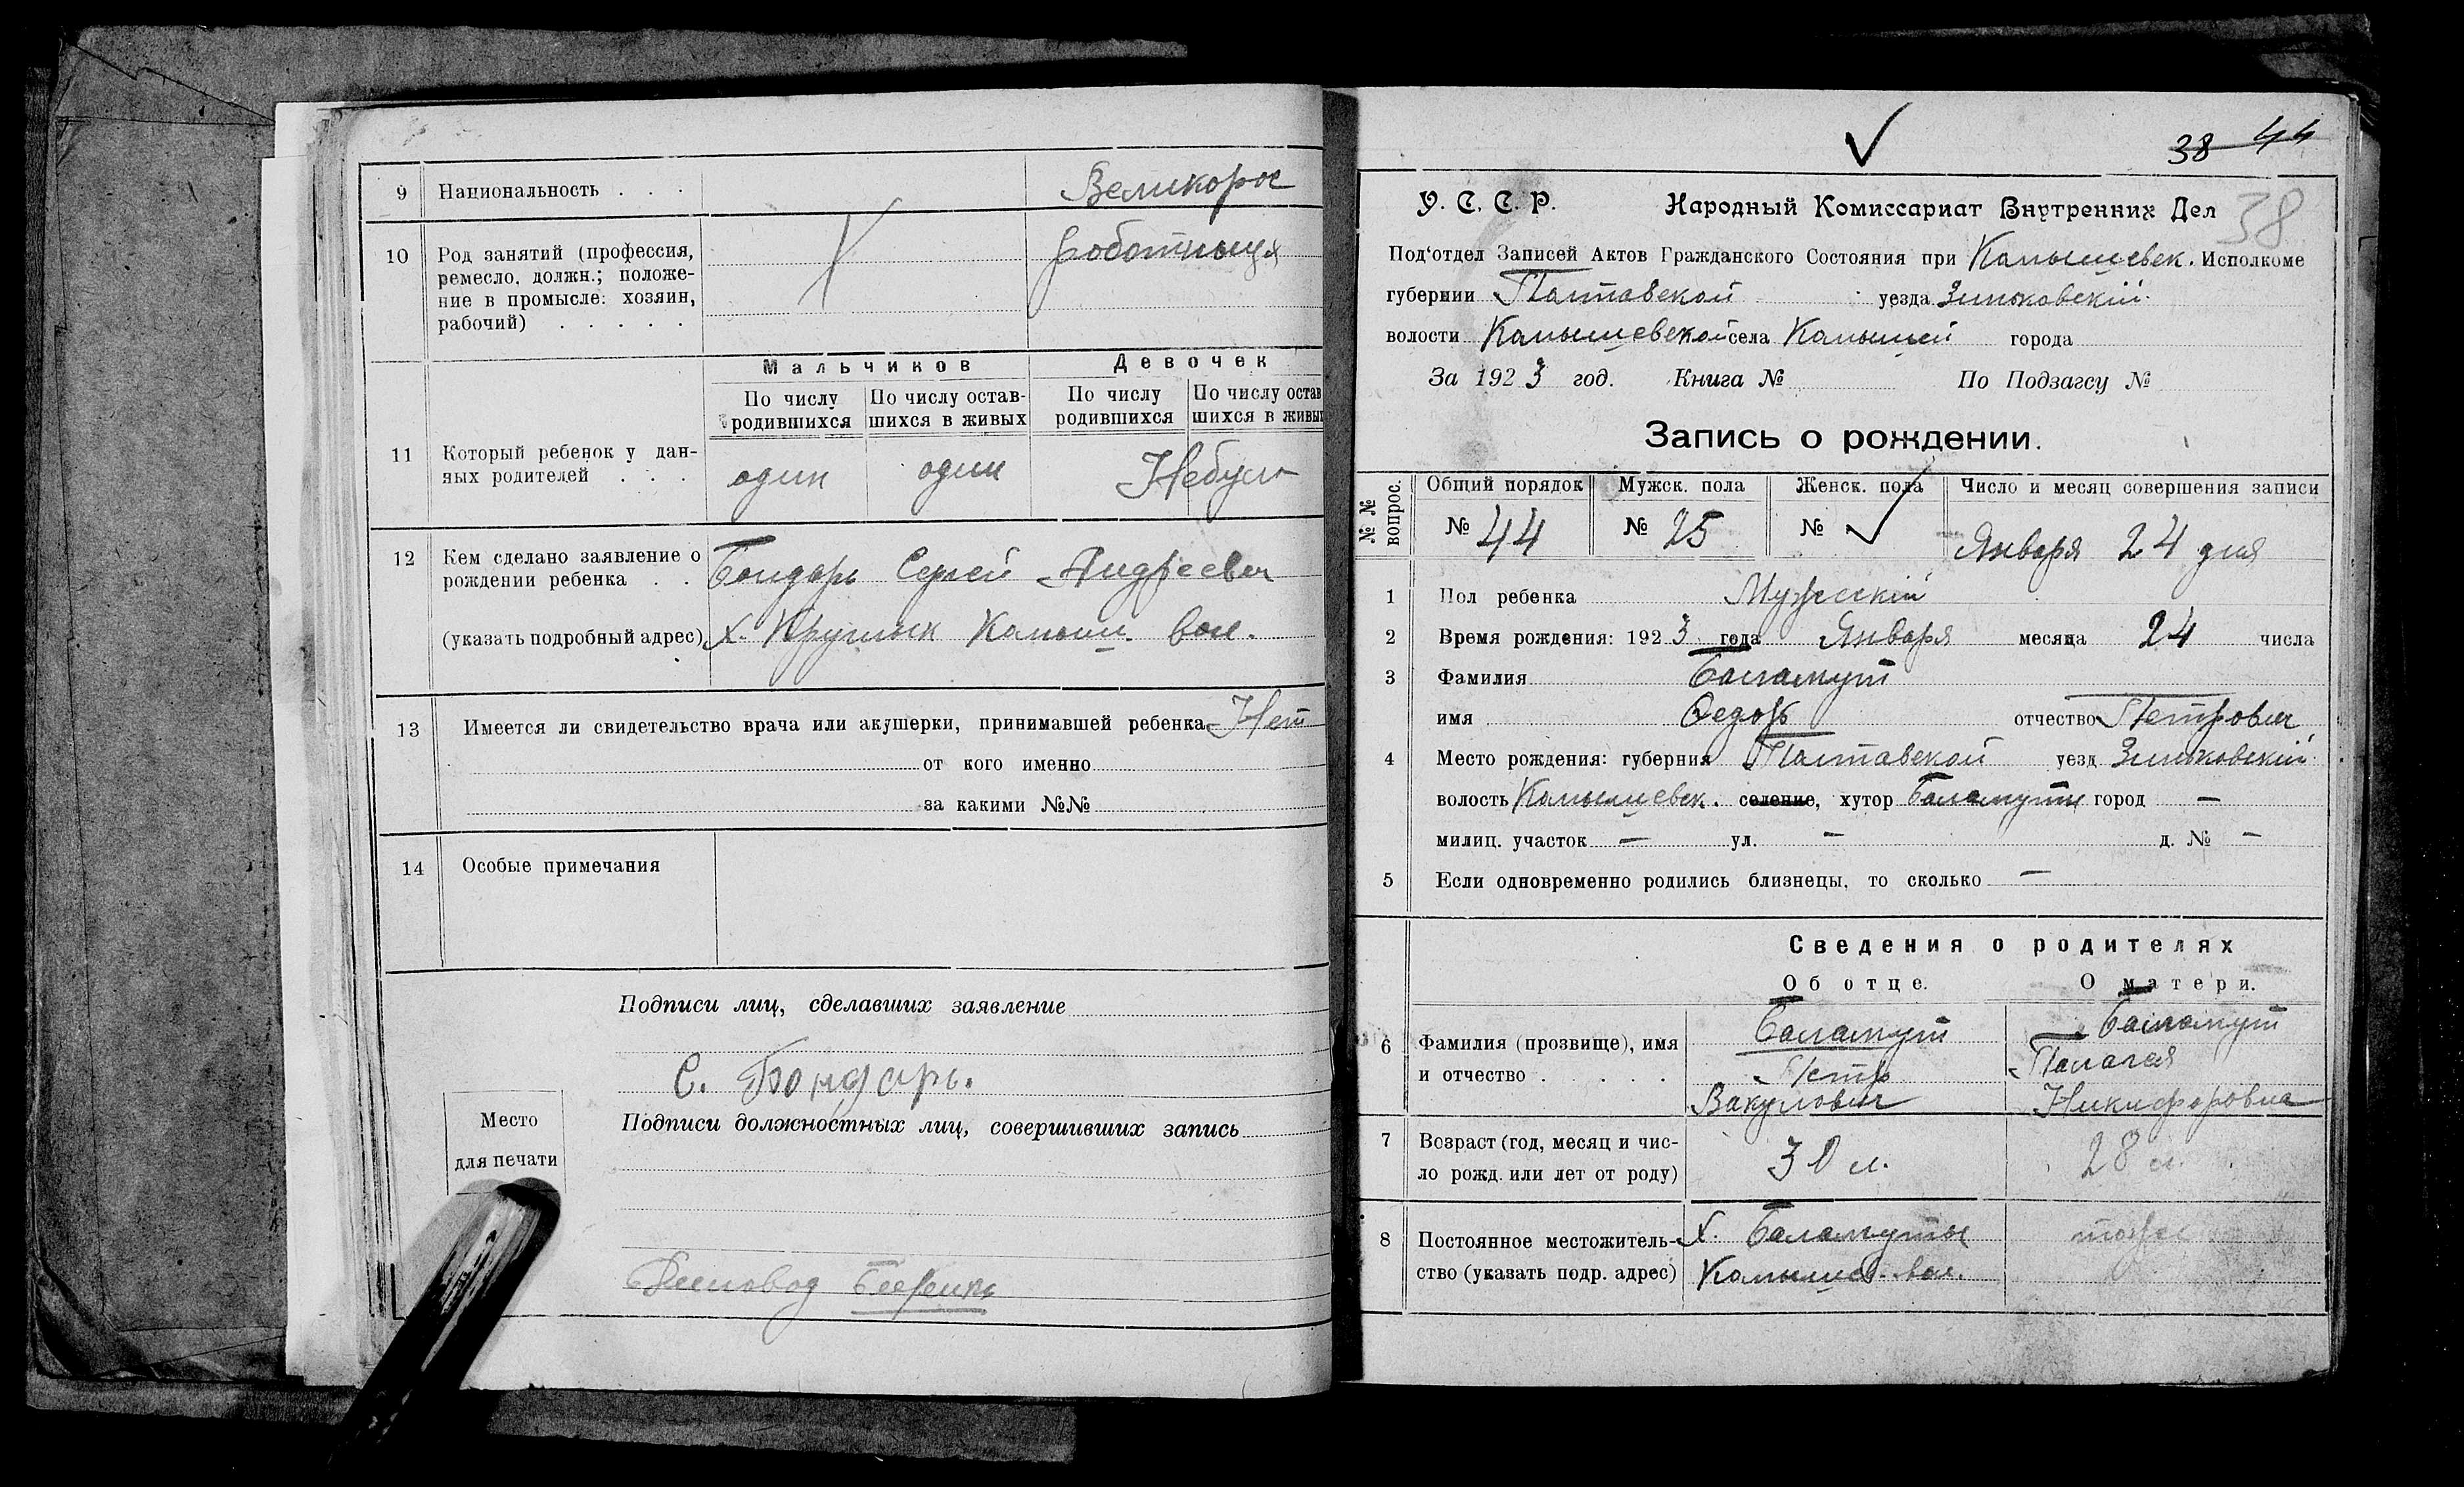 9 Национальность . . . Великорос
10 Род занятий (профессия, роботныця
ремесло, должн.; положе-
ние в промысле: хозяин,
рабочий) . . . . .
Мальчиков Девочек
По числу родившихся По числу остав-шихся в живых По числу родившихся По числу остав шихся в живых
11 Который ребенок у дан-
ных родителей . . . один один Небуло
12 Кем сделано заявление о Бондарь Сергей Андреевич
рождении ребенка . .
(указать подробный адрес) х. Круглык Камыш. вол.
13 Имеется ли свидетельство врача или акушерки, принимавшей ребенка Нет
от кого именно
за какими №№
14 Особые примечания
Подписи лиц, сделавших заявление
С. Бондарь.
Место для печати
Подписи должностных лиц, совершивших запись
Деловод
38 44
38
У. С. С. Р. Народный Комиссариат Внутренних Дел
Под'отдел Записей Актов Гражданского Состояния при Камышевск. Исполкоме
губернии Полтавской уезда Зиньковский
волости Камышевской села Камышей города
За 1923 год. Книга № По Подзагсу №
Запись о рождении.
№№ вопрос. Общий порядок Мужск. пола Женск. пола Число и месяц совершения записи
№ 44 № 25 № Января 24 дня
1 Пол ребенка Мужескій
2 Время рождения: 1923 года Января месяца 24 числа
3 Фамилия Баламут
имя Федор отчество Петрович
4 Место рождения: губерния Полтавской уезд Зиньковскій
волость Камышевск. селение, хутор Баламуты город —
милиц. участок — ул. — д. № —
5 Если одновременно родились близнецы, то сколько —
Сведения о родителях
Об отце. О матери.
6 Фамилия (прозвище), имя Баламут Баламут
и отчество . . . . Петр Палагея
Вакулович Никифоровна
7 Возраст (год, месяц и чис- 30 л. 28 л.
ло рожд. или лет от роду)
8 Постоянное местожитель- х. Баламуты тоже
ство (указать подр. адрес) Камышев. вол.